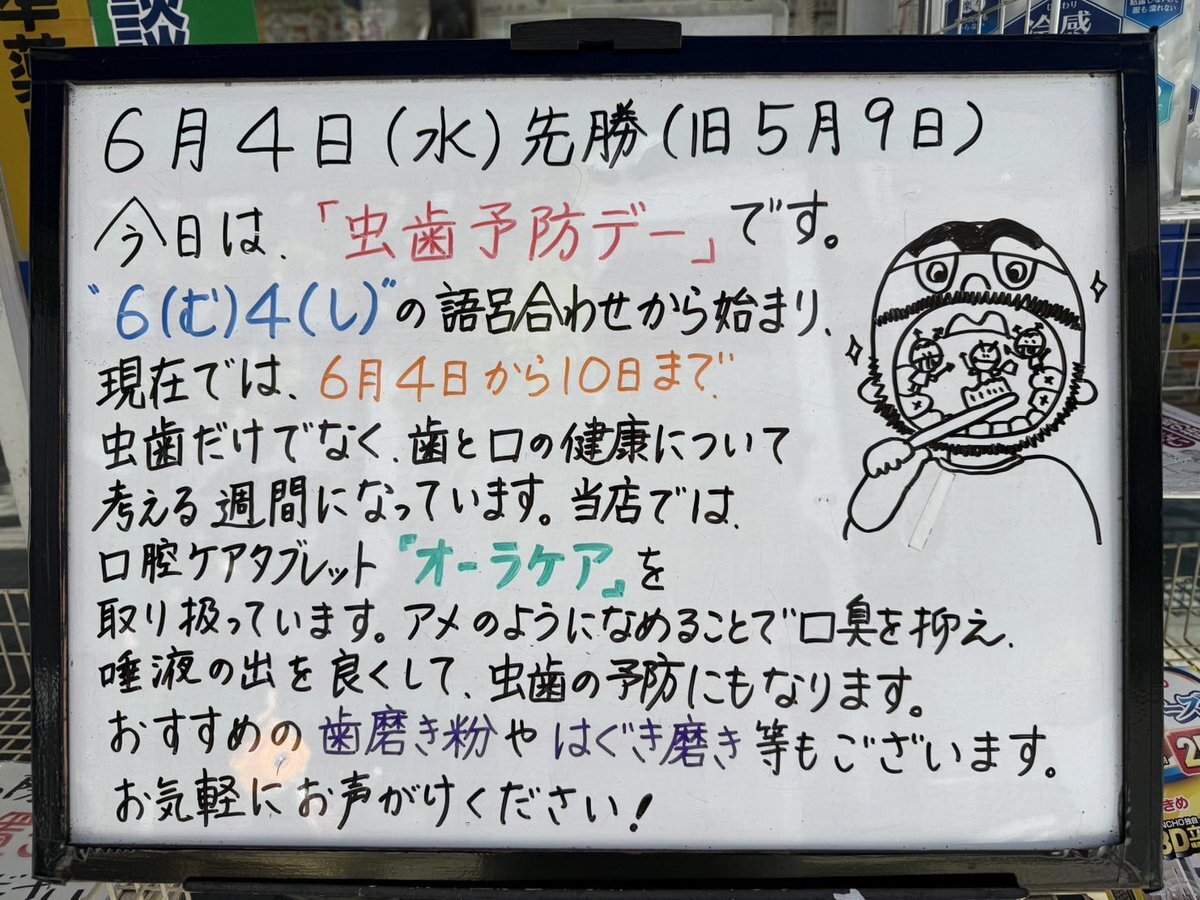 6月4日(水)先勝(旧5月9日)
今日は、「虫歯予防デー」です。
"6(む)4(し)"の語呂合わせから始まり、
現在では、6月4日から10日まで
虫歯だけでなく、歯と口の健康について
考える週間になっています。当店では、
口腔ケアタブレット『オーラケア』を
取り扱っています。アメのようになめることで口臭を抑え、
唾液の出を良くして、虫歯の予防にもなります。
おすすめの歯磨き粉やはぐき磨き等もございます。
お気軽にお声がけください!
談
冷感